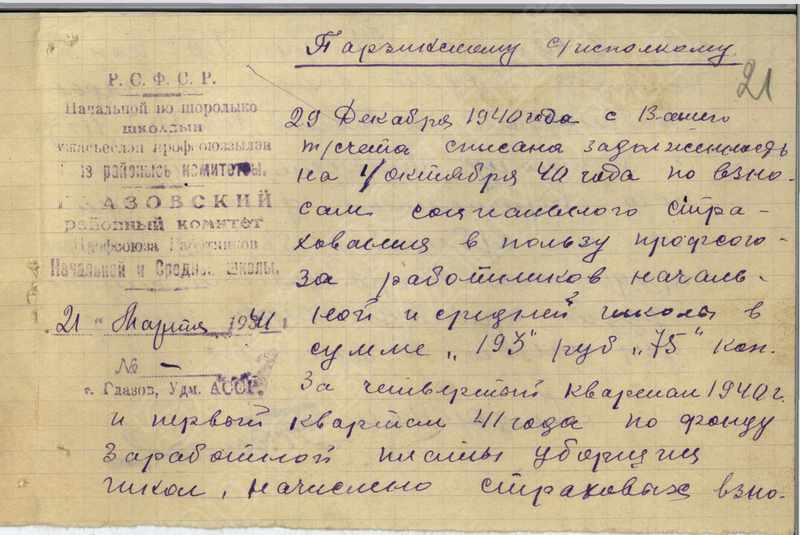 Парзинскому с/исполкому
21
Р. С. Ф. С. Р.
Начальной но шоролыко
школлын
ужасьёслэн профсоюззылэн
районысь комитетсы.
ГЛАЗОВСКИЙ
районный комитет
Профсоюза Работников
Начальной и Средней школы.
„21" Марта 1941
№ —
г. Глазов, Удм. АССР.
29 Декабря 1940 года с Вашего
т/счета списана задолженность
на 1/октября 40 года по взно-
сам социального стра-
хования в пользу профсою-
за работников началь-
ной и средней школы в
сумме „193" руб „75" коп.
За четвертый квартал 1940 г.
и первый квартал 41 года по фонду
заработной платы уборщиц
школ, начислено страховых взно-